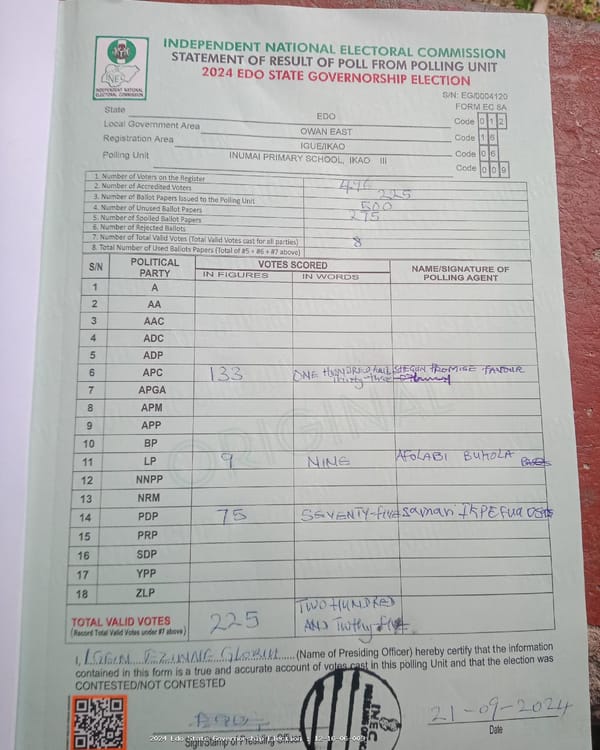 INEC
INDEPENDENT NATIONAL
ELECTORAL COMMISSION
INDEPENDENT NATIONAL ELECTORAL COMMISSION
STATEMENT OF RESULT OF POLL FROM POLLING UNIT
2024 EDO STATE GOVERNORSHIP ELECTION
S/N: EG/0004120
FORM EC 8A
State EDO Code 0 1 2
Local Government Area OWAN EAST Code 1 6
Registration Area IGUE/IKAO Code 0 6
Polling Unit INUMAI PRIMARY SCHOOL, IKAO III Code 0 0 9
1. Number of Voters on the Register
2. Number of Accredited Voters 225
3. Number of Ballot Papers Issued to the Polling Unit 500
4. Number of Unused Ballot Papers 275
5. Number of Spoiled Ballot Papers
6. Number of Rejected Ballots 8
7. Number of Total Valid Votes (Total Valid Votes cast for all parties)
8. Total Number of Used Ballots Papers (Total of #5 + #6 + #7 above)
S/N POLITICAL PARTY VOTES SCORED NAME/SIGNATURE OF POLLING AGENT
IN FIGURES IN WORDS
1 A
2 AA
3 AAC
4 ADC
5 ADP
6 APC 133 ONE HUNDRED Thirty-three PROMISE FAVOUR
7 APGA
8 APM
9 APP
10 BP
11 LP 9 NINE AFOLABI BUKOLA
12 NNPP
13 NRM
14 PDP 75 SEVENTY-FIVE
15 PRP
16 SDP
17 YPP
18 ZLP
TOTAL VALID VOTES 225 TWO HUNDRED
(Record Total Valid Votes under #7 above) AND
ORIGINAL
I, (Name of Presiding Officer) hereby certify that the information
contained in this form is a true and accurate account of votes cast in this polling Unit and that the election was
CONTESTED/NOT CONTESTED
21-09-2024
Sign/Stamp of Presiding Date
INEC
2024 Edo State Governorship Election